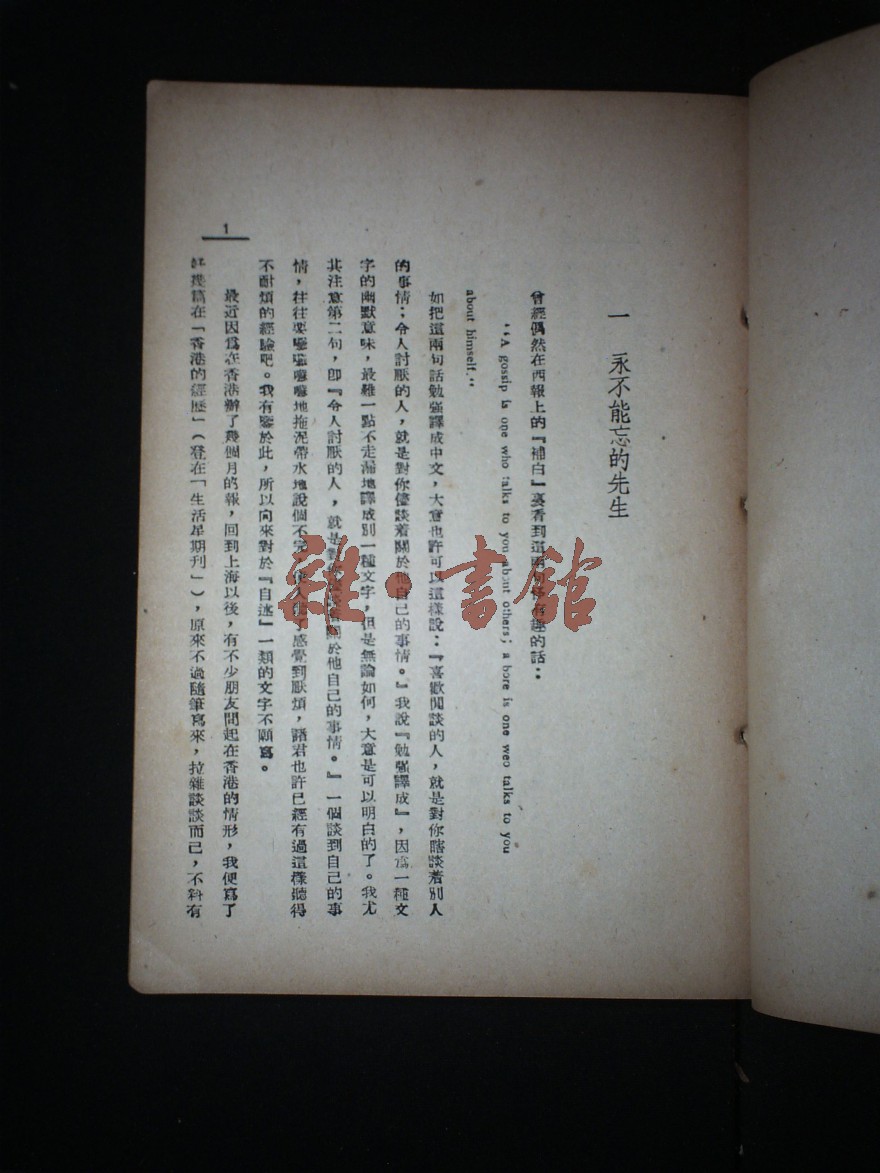 一　永不能忘的先生
曾經偶然在西報上的『補白』裏看到這兩句怪有趣的話：
“A gossip is one who talks to you about others; a bore is one weo talks to you
about himself.“
如把這兩句話勉强譯成中文，大意也許可以這樣說：『喜歡閒談的人，就是對你瞎談着別人
的事情；令人討厭的人，就是對你儘談着關於他自己的事情。』我說『勉强譯成』，因爲一種文
字的幽默意味，最難一點不走漏地譯成別一種文字，但是無論如何，大意是可以明白的了。我尤
其注意第二句，卽『令人討厭的人，就是對你儘談着關於他自己的事情。』一個談到自己的事
情，往往要囉囉囌囌地拖泥帶水地說個不完，使人聽了感覺到厭煩，諸君也許已經有過這樣聽得
不耐煩的經驗吧。我有鑒於此，所以向來對於『自述』一類的文字不願寫。
最近因爲在香港辦了幾個月的報，回到上海以後，有不少朋友問起在香港的情形，我便寫了
好幾篇在「香港的經歷」（登在「生活星期刊」），原來不過隨筆寫來，拉雜談談而已，不料有
1
雜·書館